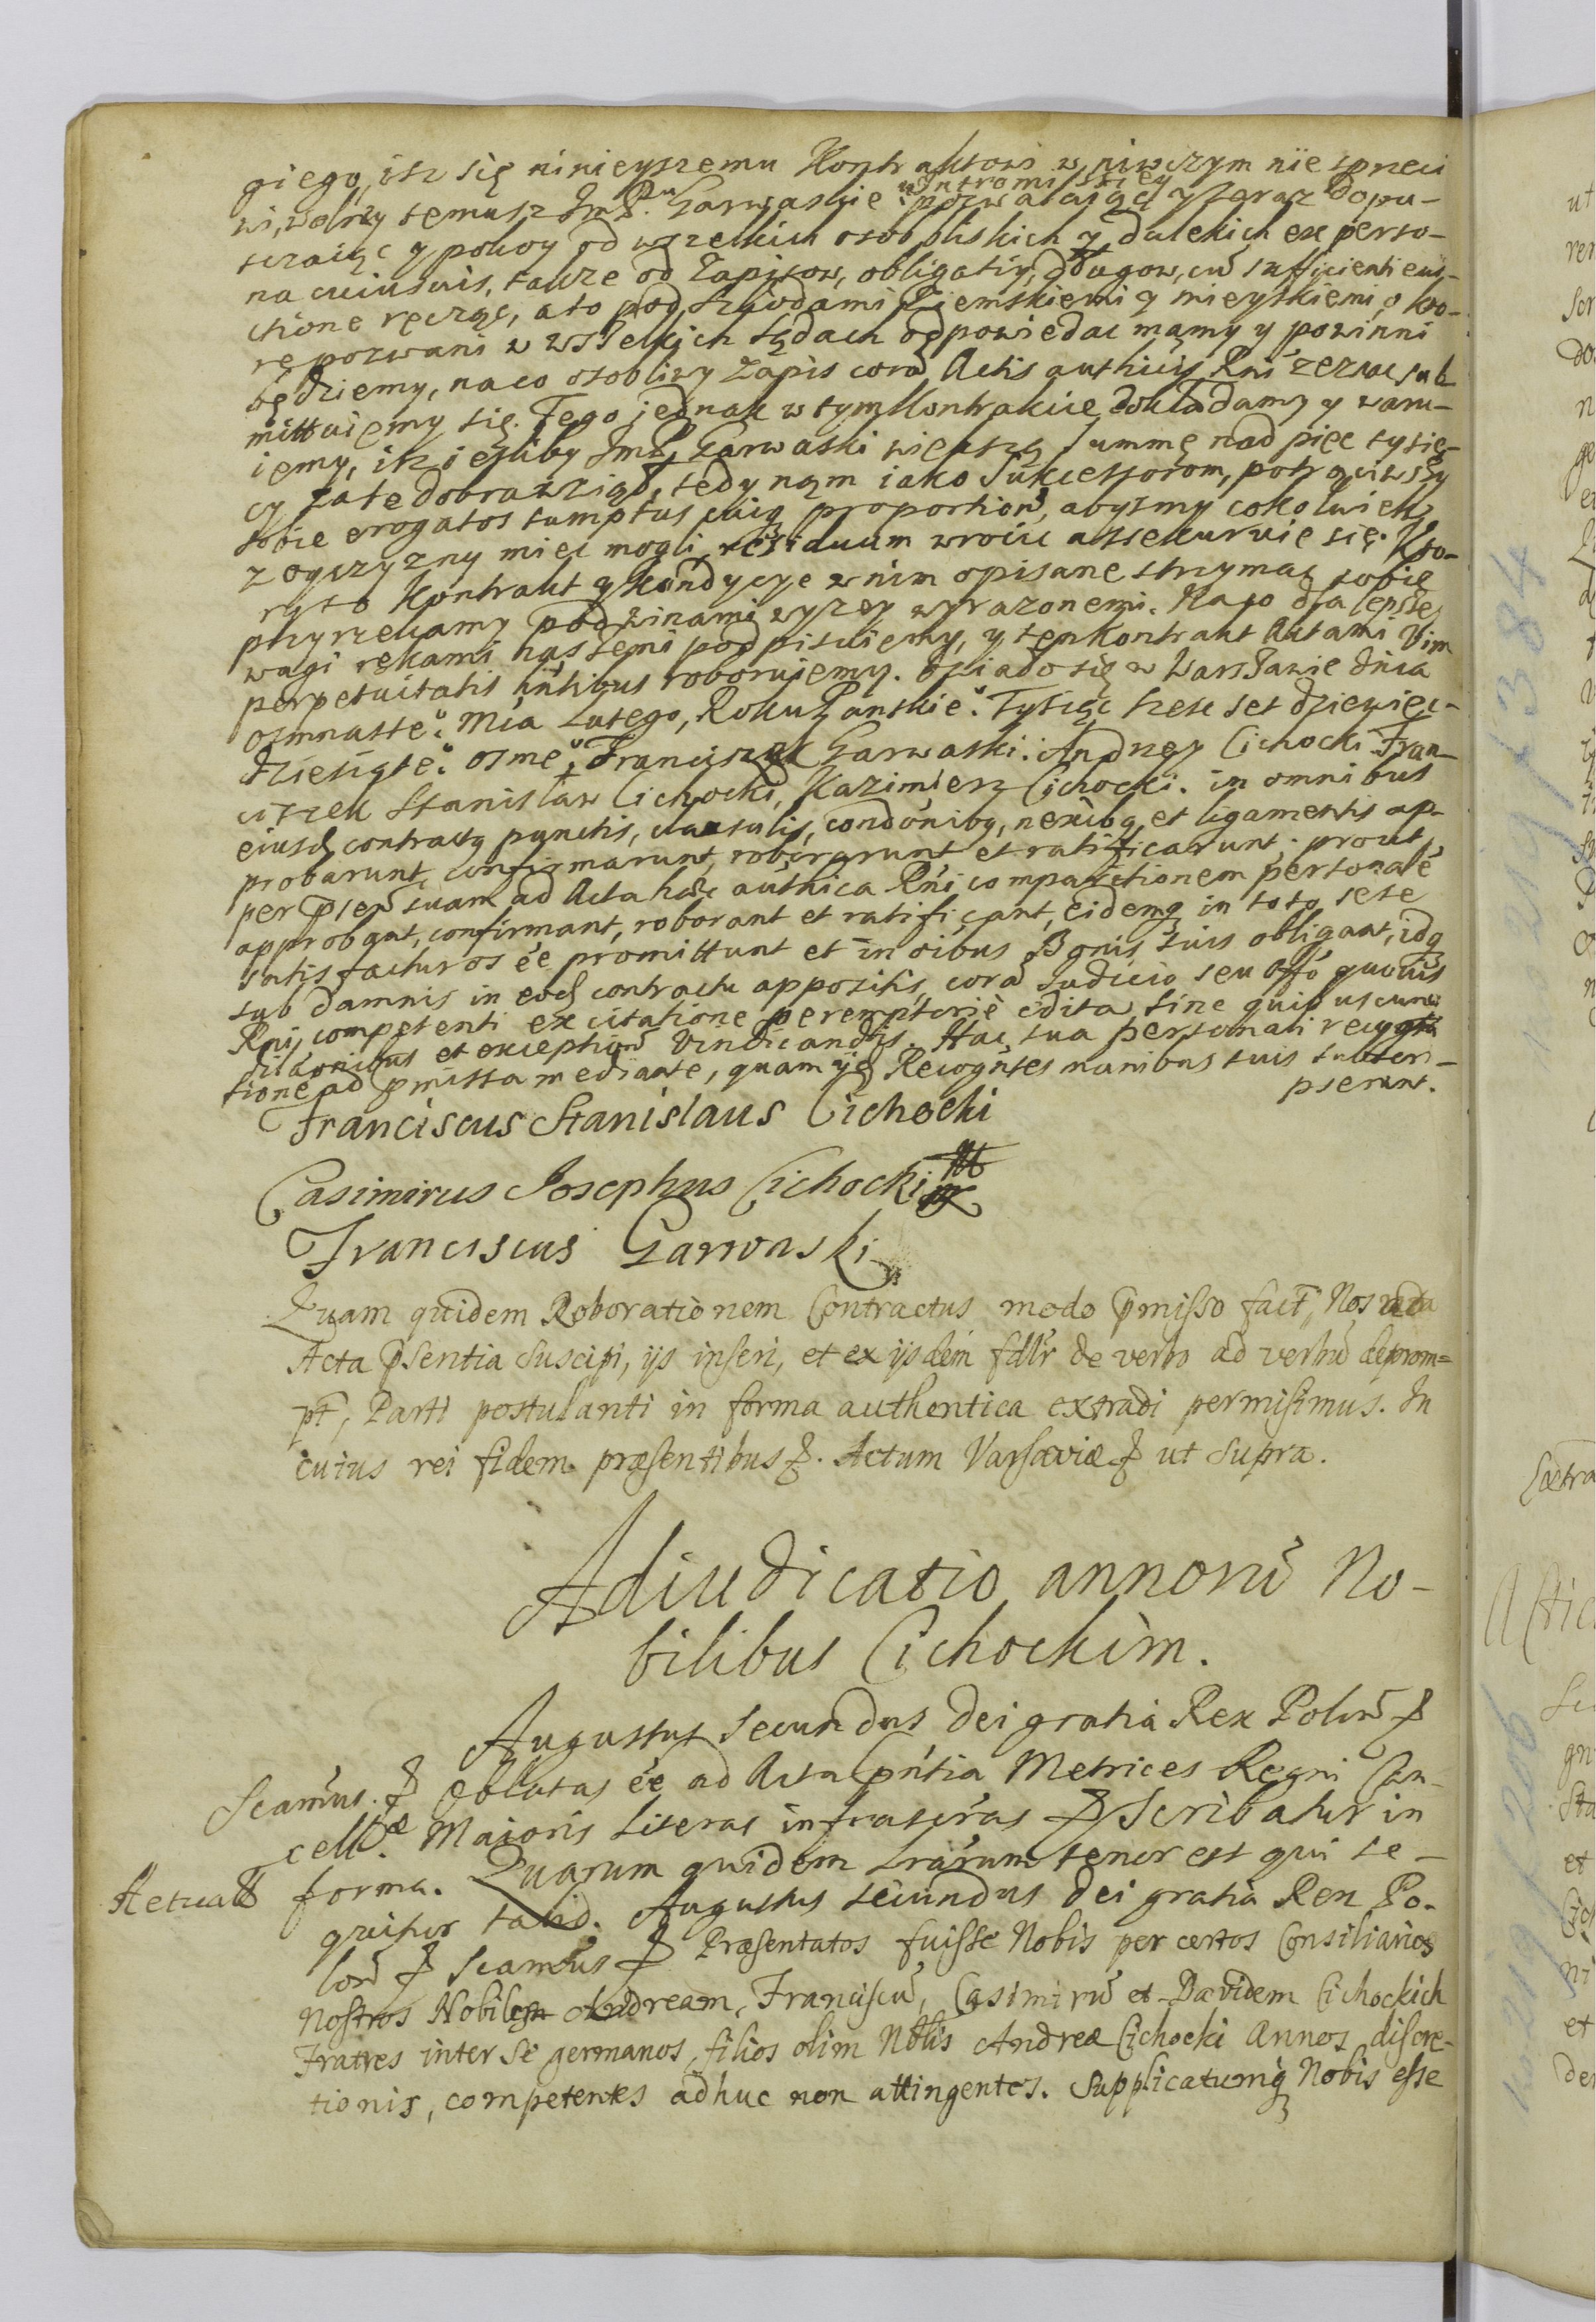 giego, isz się ninieyszemu Kontraktowi w niwczym nie sprzeci
wi, wolny temusz JmP.nu Garwaskie.u Intromissiey pozwalaiąc y teraz dopu-
sczaiąc y pokoy od wszelkich osob bliskich y dalekich ex perso-
na cuiusuis, takze od Zapisow, obligatiy, długow, cũ sufficienti eui-
ctione ręcząc, a to pod szkodami Ziemskiemi y mieyskiemi, o kto-
rę pozwani w wszelkich sądach odpowiedac mamy y powinni
będziemy, na co osobliwy Zapis corã Actis authicis Rni zeznac sub
mittuiemy się. Tego jednak w tym Kontrakcie dokładamy y waru-
iemy, isz ieśliby JmP Garwaski większą summę nad pięc tysię-
cy za te dobra wziął, tedy nąm iako Sukcessorom, potrąciwszy
sobie erogatos sumptus cuiq proportionẽ, abyśmy cokolwiek
z oyczyzny miec mogli, residuum wrocic assekuruie się. Kto-
ry to Kontrakt y kondycye w nim opisane strzymac sobie
przyrzekamy pod winami wyzey wyrazonemi. Na to dla lepszey
wagi rękami naszemi podpisuiemy, y ten Kontrakt Aktami Vim
perpetuitatis intibus roborujemy. Działo się w Warszawie dnia
osmnaste.o Mia Lutego, Roku Panskie.o Tysiąc szesc set dziewięc-
dziesiąte.o osme.o Franciszek Garwaski. Andrzey Cichocki Fran-
ciszek Stanisław Cichocki, Kazimierz Cichocki. in omnibus
eiusd contractq punctis, clausulis, condónibq, nexibq et ligamentis ap-
probarunt, confirmarunt, roborarunt et ratificarunt. prout
per psen suam ad Acta hæc authica Rni comparitionem personalẽ
approbant, confirmant, roborant et ratificant, eidemq in toto sese
satisfacturos eẽ promittunt et in oibus Bonis suis obligant, idq
sub damnis in eod contractu appositis, corã Judicio seu Offo quouis
Rni competenti ex citatione peremptoriè edita, sine quibuscunq
dilaonibus et exceptionẽ vindicandis. Hac sua personali recogni
tione ad pmissa mediante, quam ijd Recogntes manibus suis subscri-
pserunt.
Franciscus Stanislaus Cichocki
Casimirus Josephus Cichocki
Franciscus Garwaski
Quam quidem Roborationem Contractus modo pmisso fact, Nos ad
Acta psentia suscipi, ijs inseri, et ex ijsdem fdlr de verbo ad verbũ deprom=
pt, Parti postulanti in forma authentica extradi permisimus. In
cuius rei fidem præsentibus &. Actum Varsaviæ & ut supra.
Adiudicatio annorũ No-
bilibus Cichockim.
Augustus Secundus, Dei gratia Rex Polonũ &
Scamus. & Oblatas eẽ ad Acta pntia Metrices Regni Can-
cell.æ Maioris Literas infrascras & Scribatur in
Actuali forma. Quarum quidem Lrarum tenor est qui se-
quitur talis. Augustus secundus Dei gratia Rex Po-
lonũ & Scamus & Præsentatos fuisse Nobis per certos Consiliarios
Nostros Nobiles Andream, Franciscũ, Casimirũ et Davidem Cichockich
Fratres inter se germanos, filios olim Nblis Andreæ Cichocki Annos discre-
tionis, competentes adhuc non attingentes. Supplicatumq Nobis esse